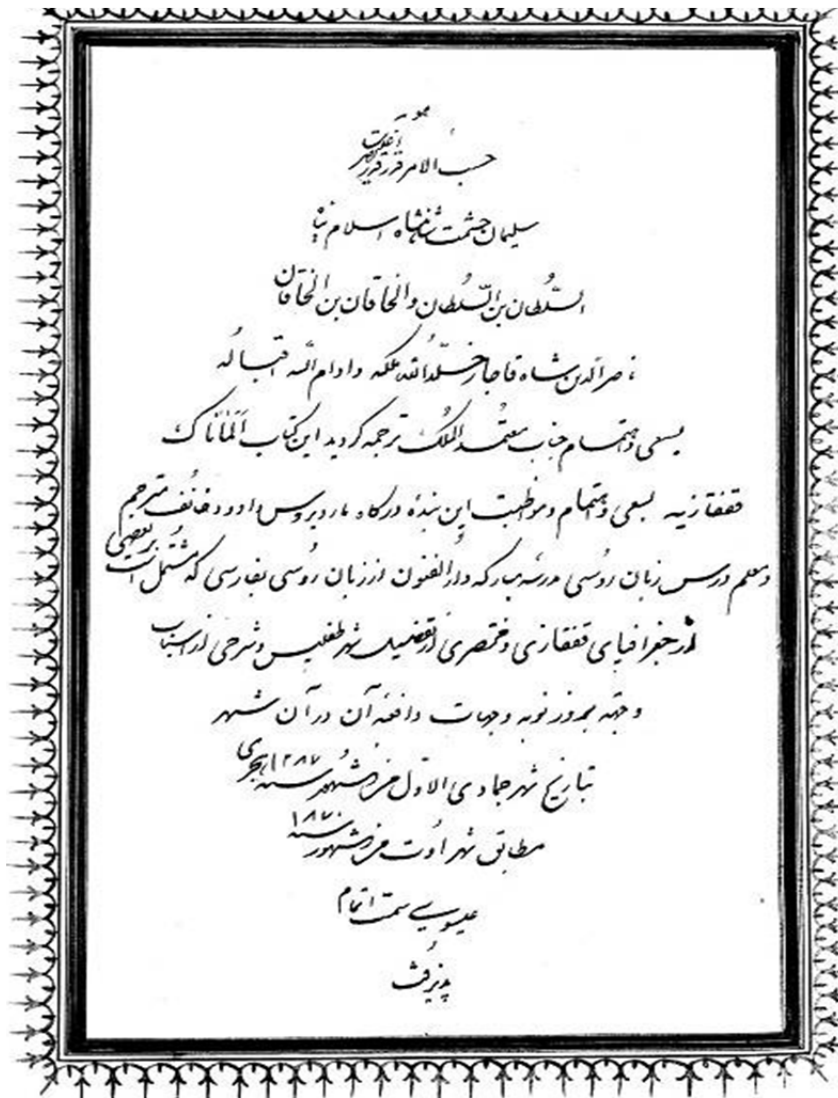 هو
حسب الامر قدر قدرت اعلیحضرت
سلیمان حشمت شاهنشاه اسلام پناه
السّلطان بن السّلطان والخاقان بن الخاقان
ناصرالدین شاه قاجار خلّدالله ملکه و ادام الله اقباله
بسعی و اهتمام جناب معتمدالملک ترجمه گردید این کتاب المَاناک
قفقازیه بسعی و اهتمام و مواظبت این بنده درگاه مارديروس داوود خانف مترجم
و معلم درس زبان رُوسی مدرسه مبارکه دارالفنون از زبان رُوسی بفارسی که مشتمل است بر بعضی
از جغرافیای قفقازی و مختصری از تفضیل شهر طفلیس و شرحی از اسباب
و جهة بروز نوبه و جهات دافعه آن در آن شهر
بتاریخ شهر جمادی الاوّل من شهور سنه ۱۲۸۷ هجری
مطابق شهر اوت من شهور سنه ۱۸۷۰
عیسویی سمت اتمام
پذیرفت